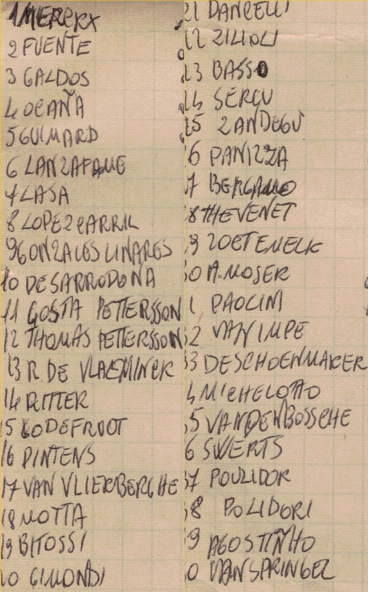 1 MERCKX
2 FUENTE
3 GALDOS
4 OCAÑA
5 GUIMARD
6 LANZAFAME
7 LASA
8 LOPEZ CARRIL
9 GONZALES LINARES
10 DESARRODONA
11 GOSTA PETTERSSON
12 THOMAS PETTERSSON
13 R DE VLAEMINCK
14 RITTER
15 GODEFROOT
16 PINTENS
17 VAN VLIERBERGHE
18 MOTTA
19 BITOSSI
20 GIMONDI
21 DANCELLI
22 ZILIOLI
23 BASSO
24 SERCU
25 ZANDEGÙ
26 PANIZZA
27 BERGAMO
28 THEVENET
29 ZOETEMELK
30 A. MOSER
1 PAOLINI
32 VAN IMPE
33 DESCHOENMAKER
4 MICHELOTTO
35 VANDENBOSSCHE
6 SWERTS
37 POULIDOR
38 POLIDORI
39 AGOSTINHO
0 VANSPRINGEL